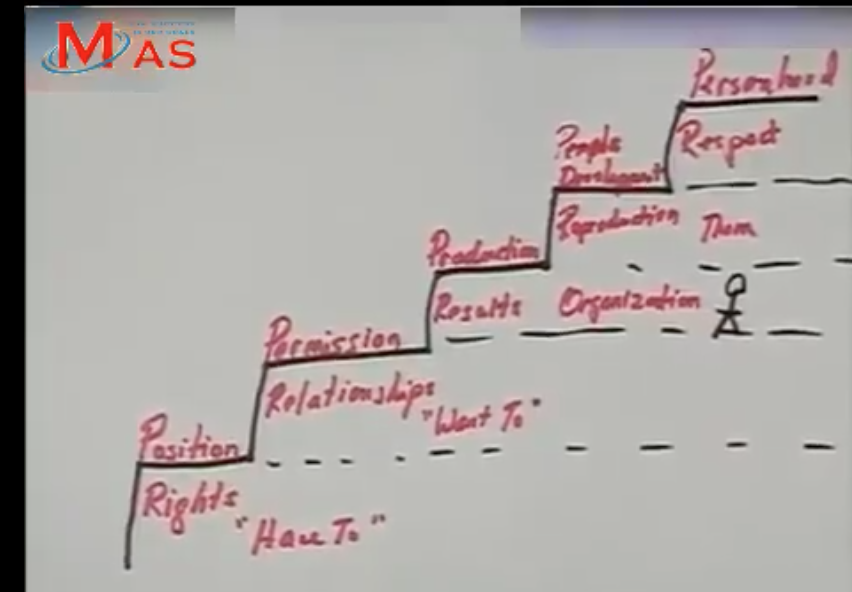 MAS
Personhood
Respect
People
Development
Reproduction Them
Production
Results Organization
Permission
Relationships
"Want To"
Position
Rights
"Have To"